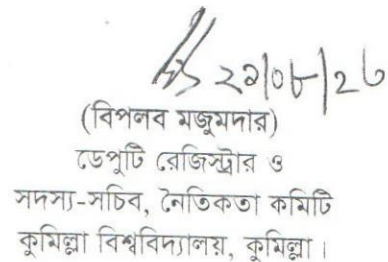 (বিপলব মজুমদার)
ডেপুটি রেজিস্ট্রার ও
সদস্য-সচিব, নৈতিকতা কমিটি
কুমিল্লা বিশ্ববিদ্যালয়, কুমিল্লা।